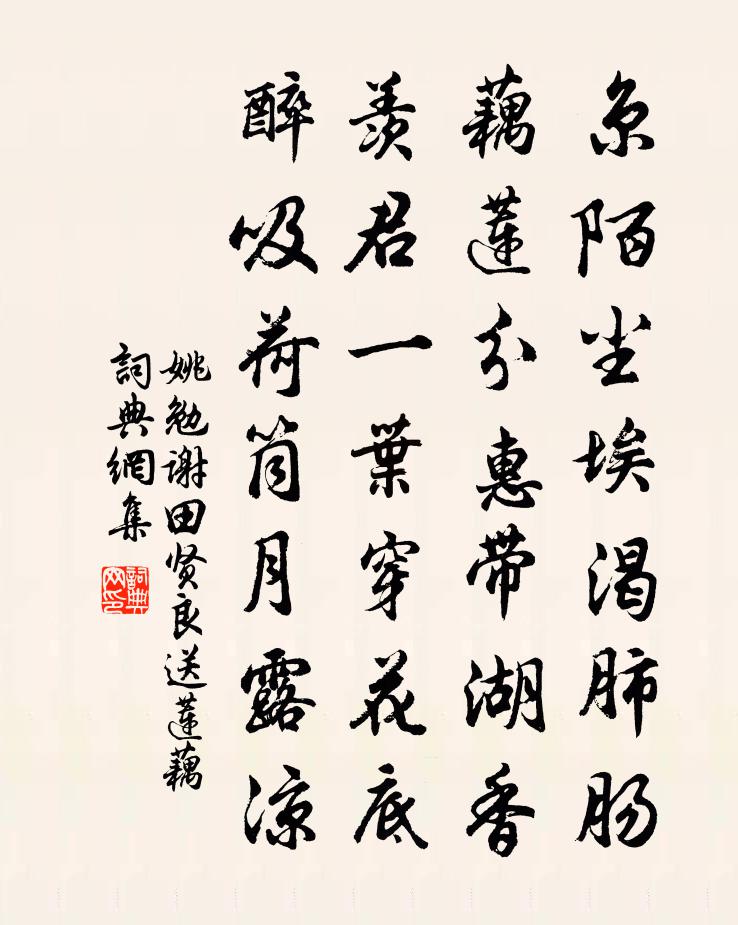 京陌尘埃渴肺肠
藕莲分惠带湖香
羨君一葉穿花底
醉吸荷筒月露凉
姚勉谢田贤良送莲藕
詞典網集
詞典網印